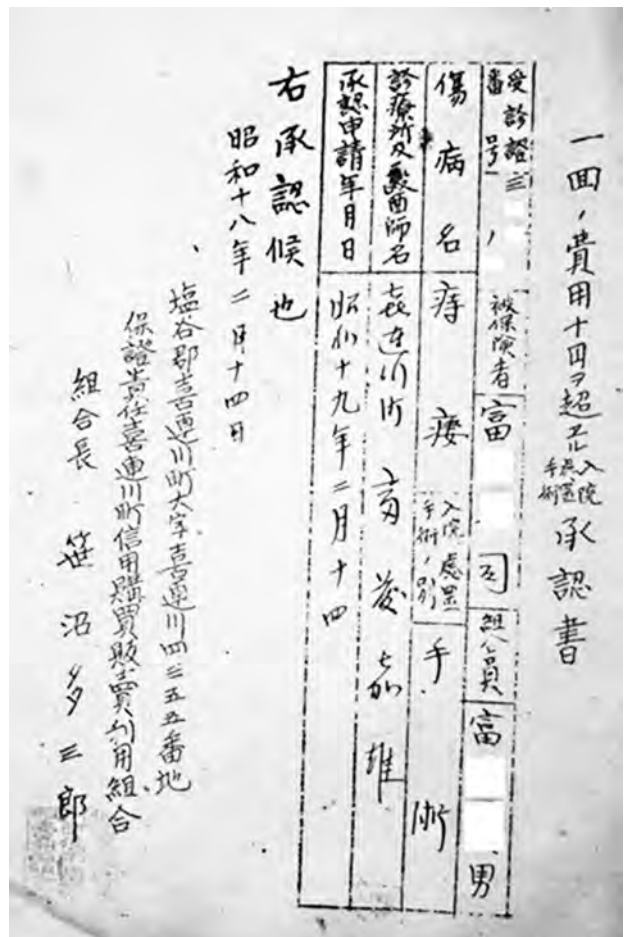 一囬ノ費用十円ヲ超エル入院處置手術承認書
受診證番号 三 ノ 被保険者 富 司 組合員 富 男
傷病名 痔瘻 入院處置手術ノ別 手術
診療所及醫師名 喜連川町 嘉雄
承認申請年月日 昭和十九年二月十四
右承認候也
昭和十八年二月十四日
塩谷郡喜連川町大字喜連川四三五五番地
保證責任喜連川町信用購買販賣利用組合
組合長 笹沼多三郎